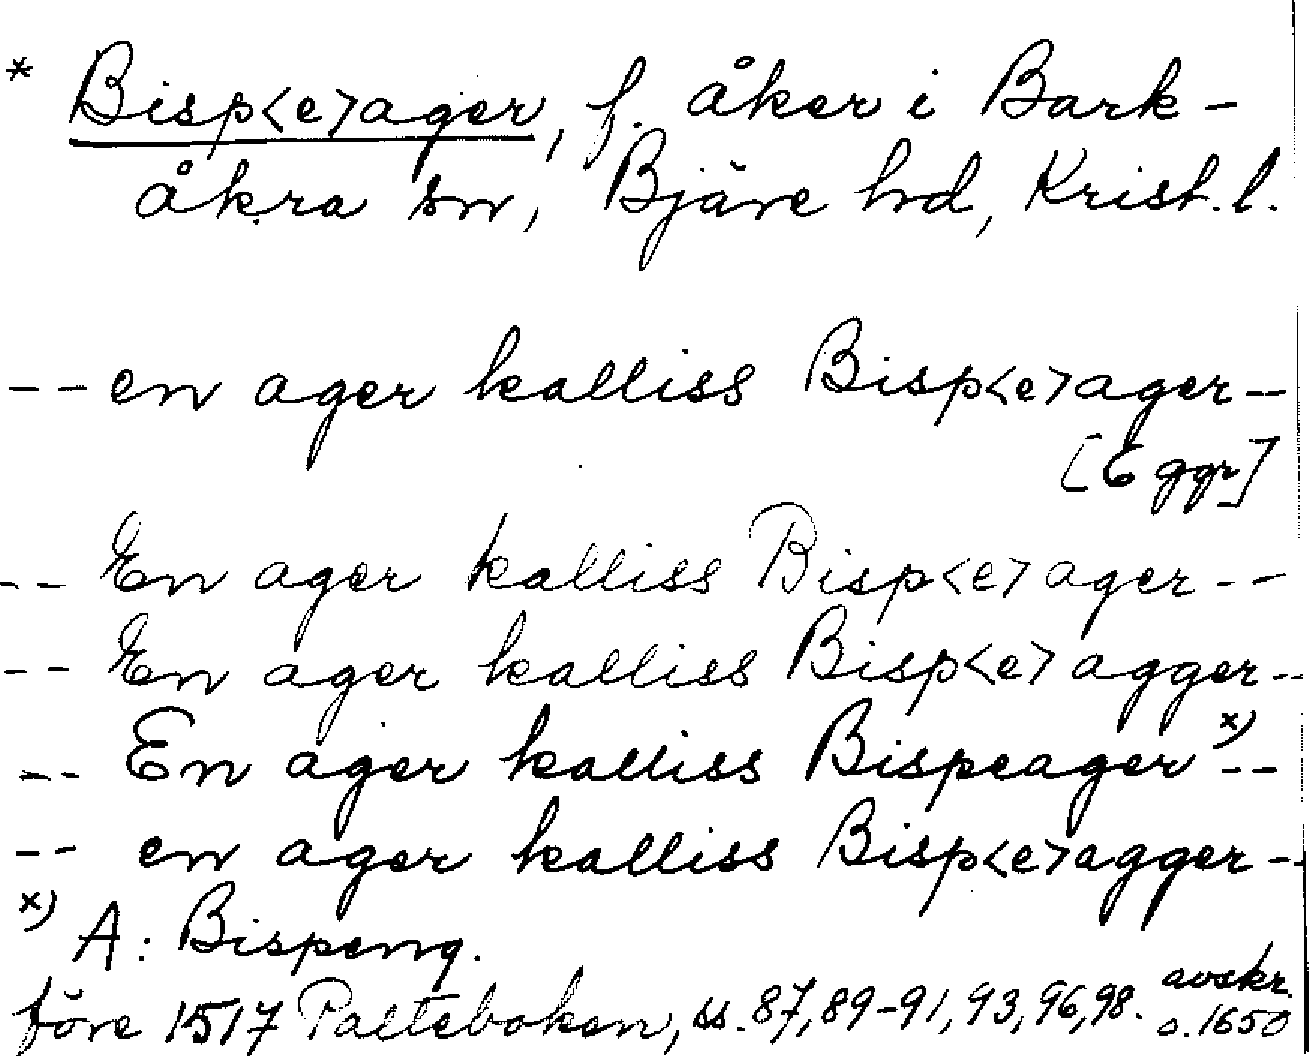 * Bisp<e>ager, f. åker i Bark-
åkra sn, Bjäre hd, Krist. l.
-- en ager kalliss Bisp<e>ager--
[6 ggr]
-- En ager kalliss Bisp<e>ager--
-- En ager kalliss Bisp<e>agger--
-- En ager kalliss Bispeager x) --
-- en ager kalliss Bisp<e>agger--
x) A: Bispeng.
före 1517 Palteboken, ss. 87, 89-91, 93, 96, 98. avskr. o. 1650